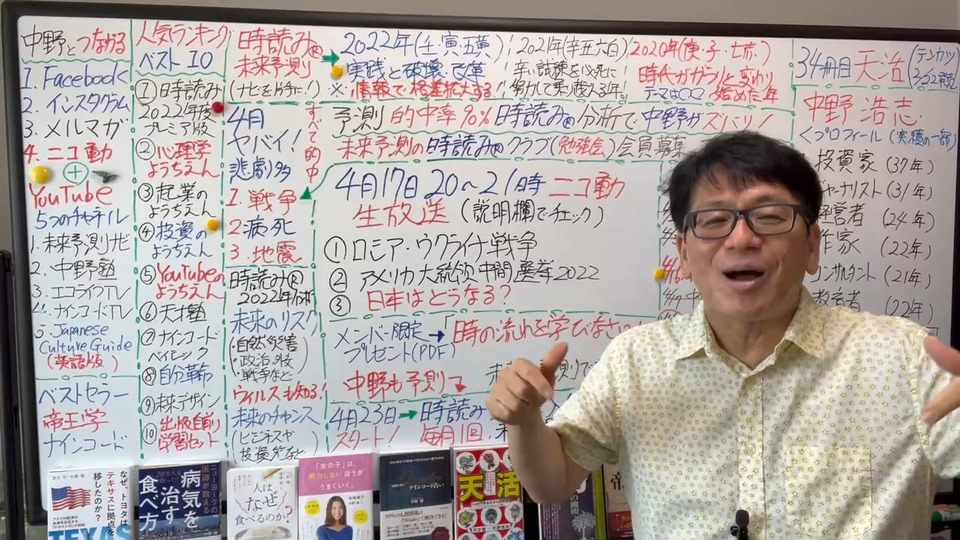 中野とつながる
1. Facebook
2. インスタグラム
3. メルマガ
4. ニコ動
+
YouTube
5つのチャンネル
1. 未来予測ナビ
2. 中野塾
3. エコライフTV
4. ナインコードTV
5. Japanese
Culture Guide
(英語版)
ベストセラー
帝王学
ナインコード
人気ランキング
ベスト10
① 時読み
2022年
プレミア版
② 心理学
ようちえん
③ 起業の
ようちえん
④ 投資の
ようちえん
⑤ YouTubeの
ようちえん
⑥ 天才塾
⑦ ナインコード
ベイシック
⑧ 自分革命
⑨ 未来デザイン
⑩ 出版
学習セット
時読み®
未来予測
(ナビを片手に!)
4月
ヤバイ!
悲劇多
すべて的中
1. 戦争
2. 病死
3. 地震
時読み®
2022年
未来のリスク
・自然災害
・政治、外交
・戦争など
ウィルスも
未来のチャンス
(ビジネスや
投資など
2022年(壬・寅・五黄)
実践と破壊・改革
※情報で格差拡大する
2021年(辛丑六白)
辛い試練を必死に
努力で乗り越える年。
2020年(庚・子・七赤)
時代がガラッと変わり
テーマは〇〇 始めた年
予測 的中率90%時読み®分析で中野がズバリ!
未来予測の時読み®クラブ(勉強会)会員募集
4月17日20~21時ニコ動
生放送(説明欄でチェック)
① ロシア・ウクライナ戦争
② アメリカ大統領中間選挙2022
③ 日本はどうなる?
メンバー限定→「時の流れを学びなさい
プレゼント(PDF)
中野も予測
4月23日→時読み
スタート! 毎月1回
34冊目 天活
中野 浩志
<プロフィール(実績の一部)
投資家(37年)
(31年)
経営者(24年)
作家(22年)
コンサルタント(21年)
教育者(22年)
なぜ、トヨタは
テキサスに拠点を
移したのか?
TEXAS
病気を
治す
食べ方
人は、
なぜ
食べるのか?
「女の子」は、
努力しないほうが
うまくいく。
ナインコード占い
天活